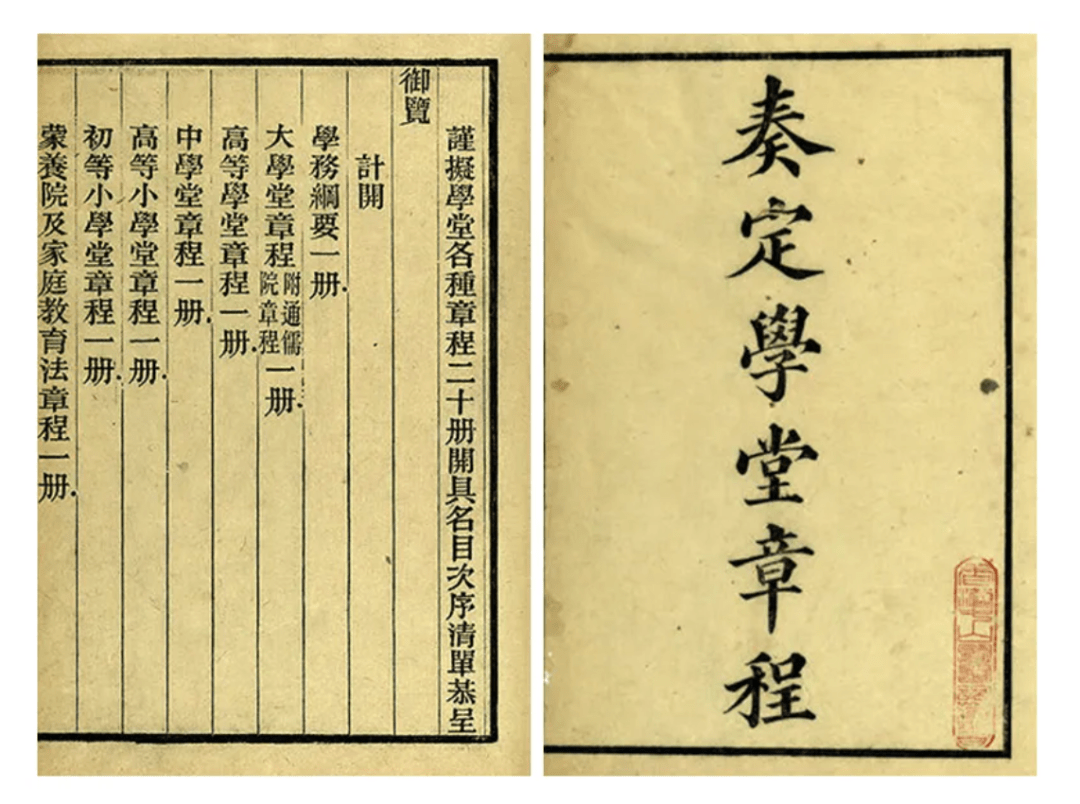 奏定學堂章程
謹擬學堂各種章程二十册開具名目次序清單恭呈
御覽
計開
學務綱要一册
大學堂章程附通儒院章程一册
高等學堂章程一册
中學堂章程一册
高等小學堂章程一册
初等小學堂章程一册
蒙養院及家庭教育法章程一册